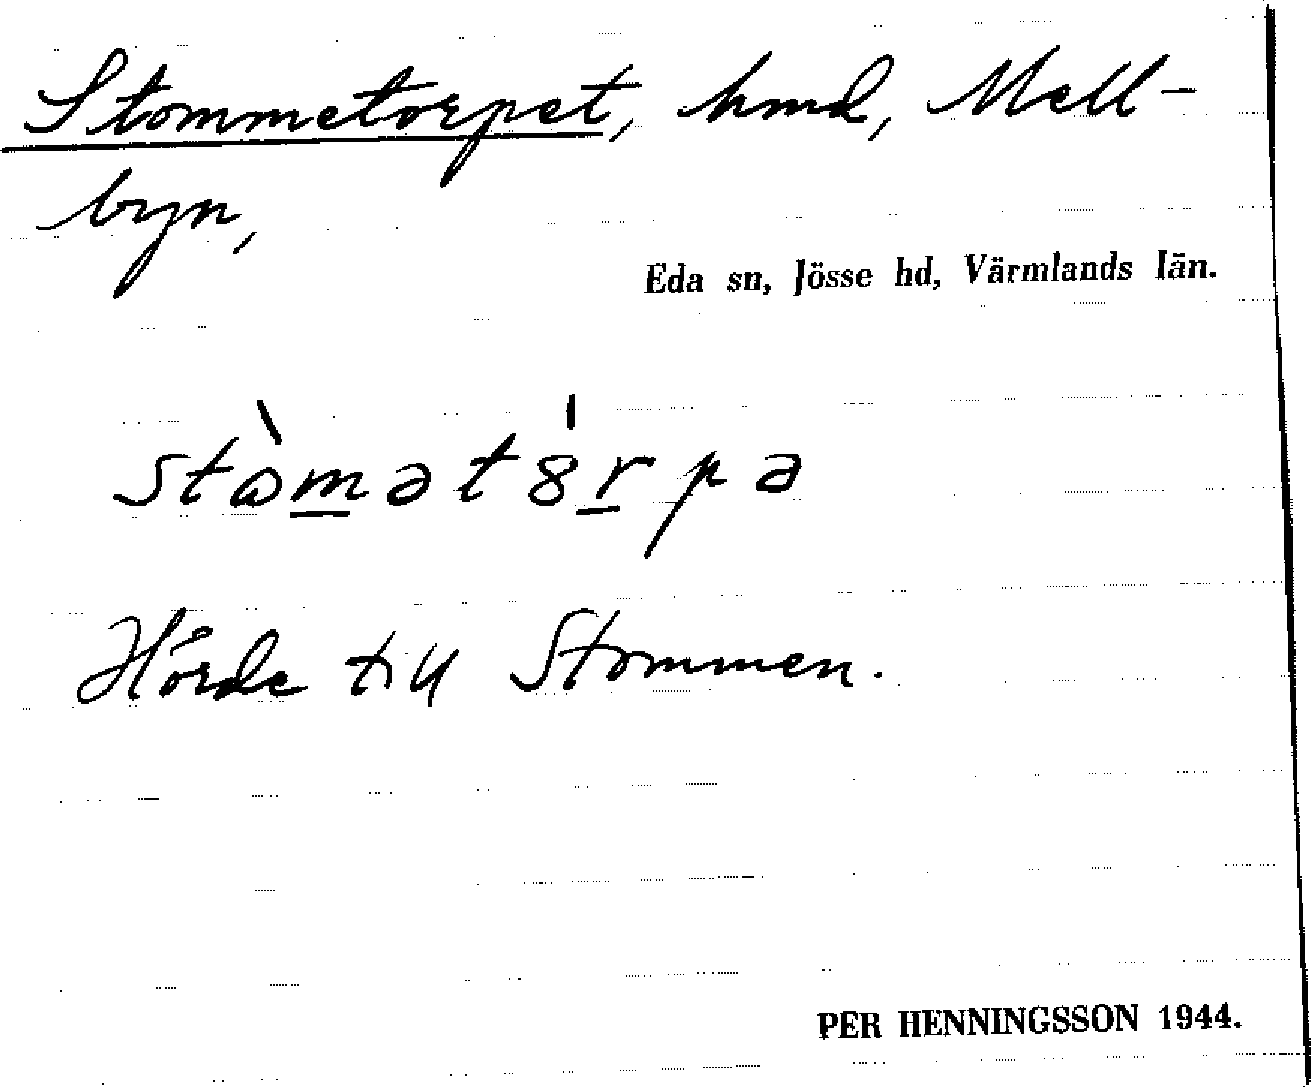 Stommetorpet, hmd, Mell-
byn,
Eda sn, Jösse hd, Värmlands län.
stꞷ̀mətȣ́rpə
Hörde till Stommen.
PER HENNINGSSON 1944.